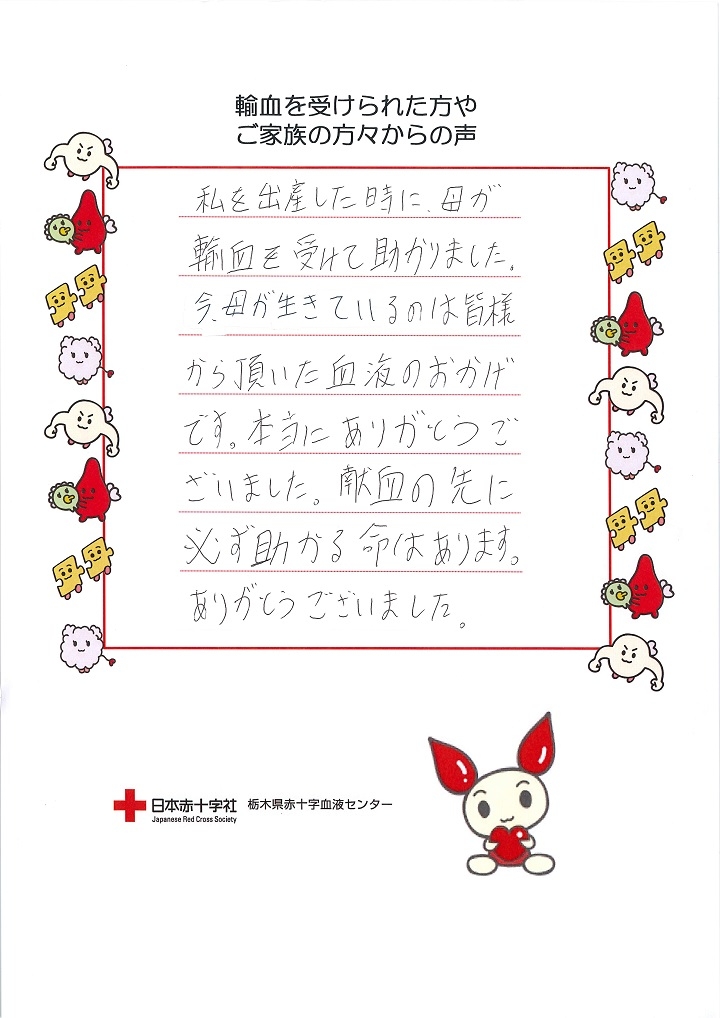 輸血を受けられた方や
ご家族の方々からの声
私を出産した時に、母が
輸血を受けて助かりました。
今、母が生きているのは皆様
から頂いた血液のおかげ
です。本当にありがとうご
ざいました。献血の先に
必ず助かる命はあります。
ありがとうございました。
日本赤十字社 栃木県赤十字血液センター
Japanese Red Cross Society